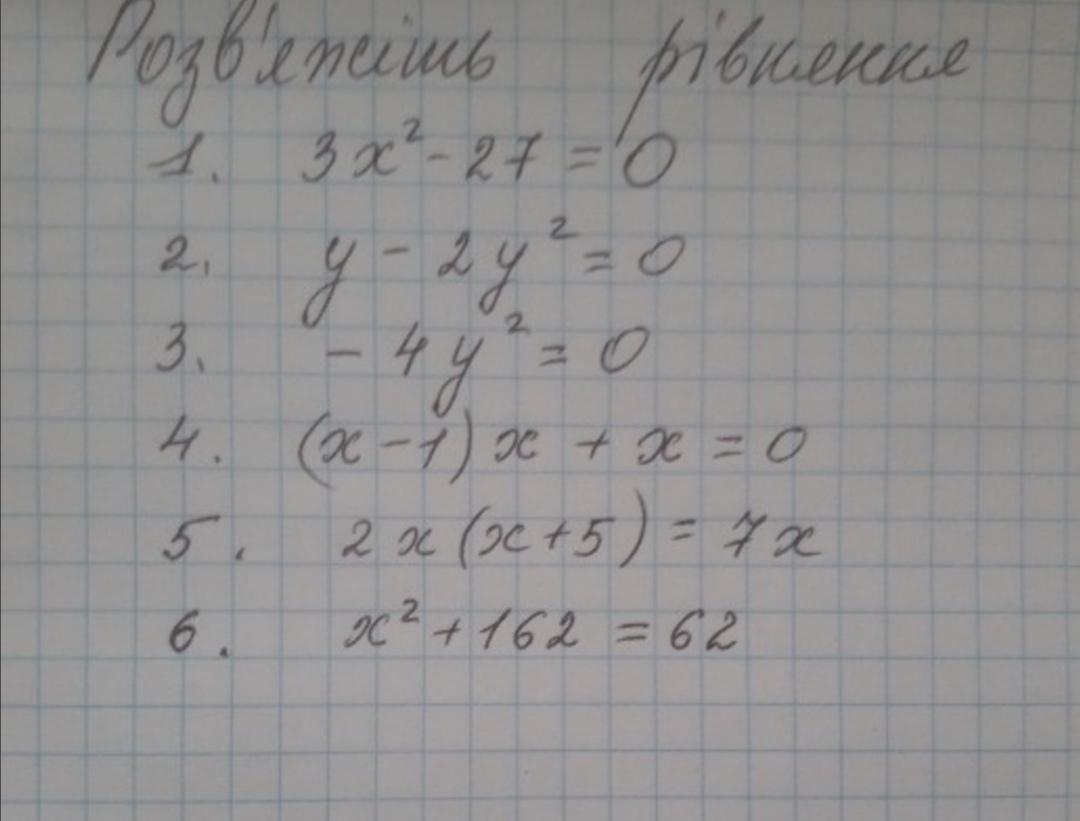 Розв'яжіть рівняння
1. 3x² - 27 = 0
2. y - 2y² = 0
3. - 4y² = 0
4. (x - 1)x + x = 0
5. 2x(x + 5) = 7x
6. x² + 162 = 62